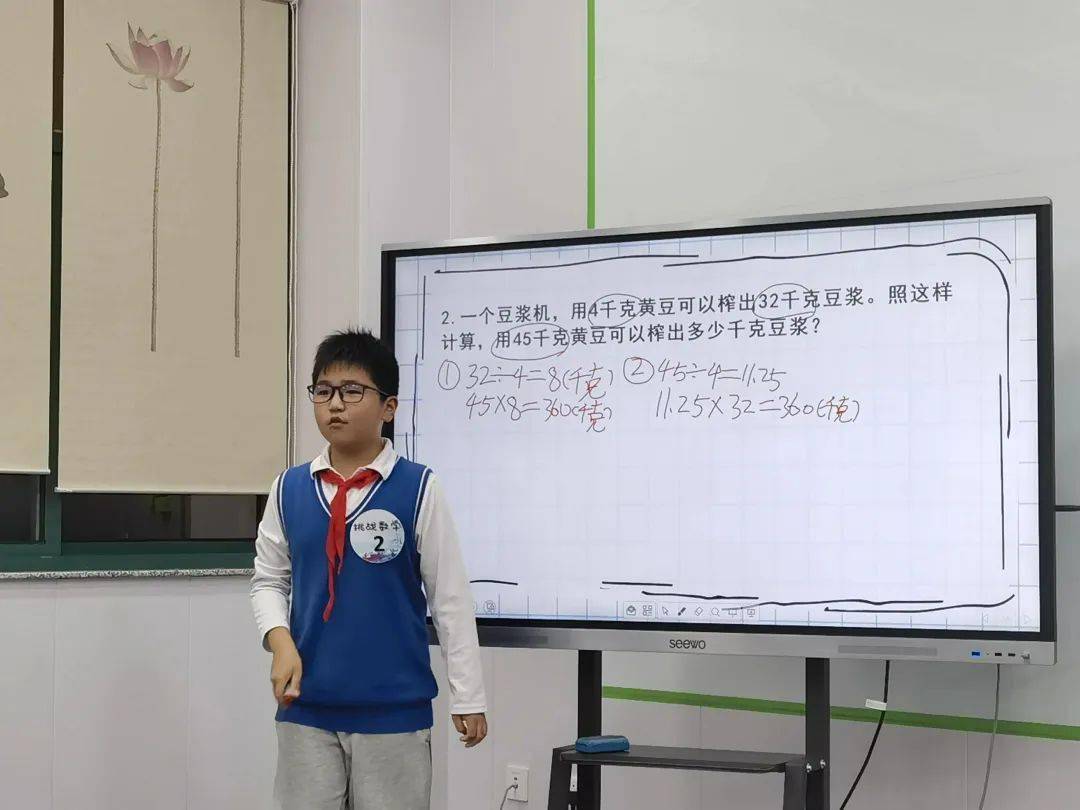 2.一个豆浆机，用4千克黄豆可以榨出32千克豆浆。照这样
计算，用45千克黄豆可以榨出多少千克豆浆？
① 32÷4=8(千克)
45×8=360(千克)
② 45÷4=11.25
11.25×32=360(千克)
挑战数学
2
seewo